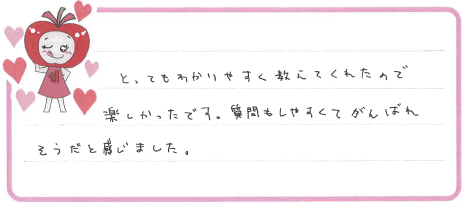 とってもわかりやすく教えてくれたので
楽しかったです。質問もしやすくてがんばれ
そうだと感じました。